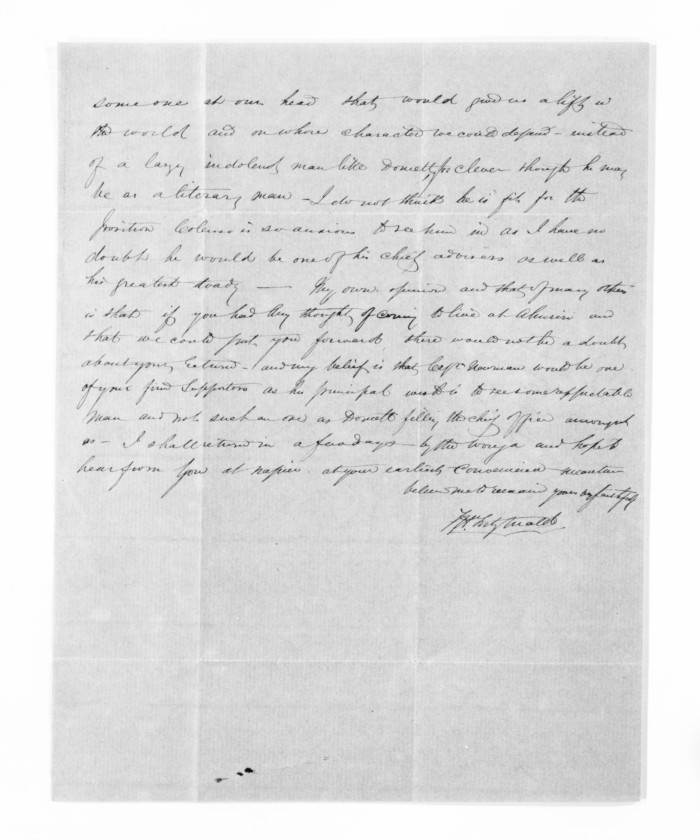 some one at our head that would give us a lift in
the world and on whose character we could depend - instead
of a lazy indolent man like Domett, for clever though he may
be as a literary man - I do not think he is fit for the
position Colenso is so anxious to see him in as I have no
doubt he would be one of his chief advisers as well as
his greatest toady — My own opinion and that of many others
is that if you had any thought of coming to live at Ahuriri and
that we could put you forward there would not be a doubt
about your return - and my belief is that Capt Newman would be one
of your first supporters as his principal wish is to see some respectable
man and not such an one as Domett filling the chief office amongst
us - I shall return in a few days by the Wonga and hope to
hear from you at Napier at your earliest convenience meantime
believe me to remain yours very faithfully
Fitzgerald